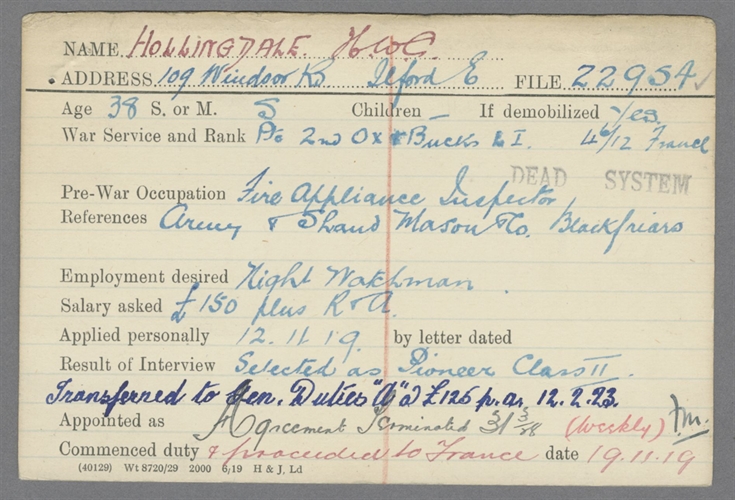 NAME HOLLINGDALE. H.W.G.
ADDRESS 109 Windsor Rd Ilford E FILE 22954
Age 38 S. or M. S Children – If demobilized Yes.
War Service and Rank Pte 2nd Ox & Bucks L I. 4 6/12 France
DEAD SYSTEM
Pre-War Occupation Fire Appliance Inspector
References Army & Shand Mason & Co. Blackfriars
Employment desired Night Watchman.
Salary asked £150 plus R & A.
Applied personally 12.11.19. by letter dated
Result of Interview Selected as Pioneer Class II.
Transferred to Gen. Duties "A" @ £125 p.a. 12.2.23.
Appointed as Agreement Terminated 31/3/28 (Weekly)
Commenced duty & proceeded to France date 19.11.19
(40129) Wt 8720/29 2000 6/19 H & J, Ld